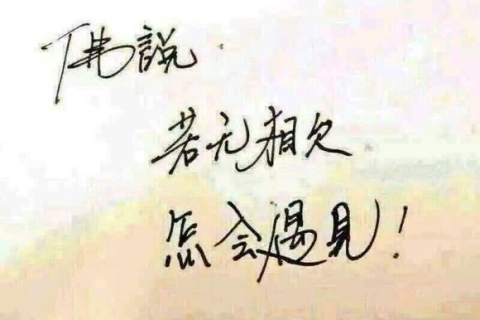 佛説
若无相欠
怎会遇見！